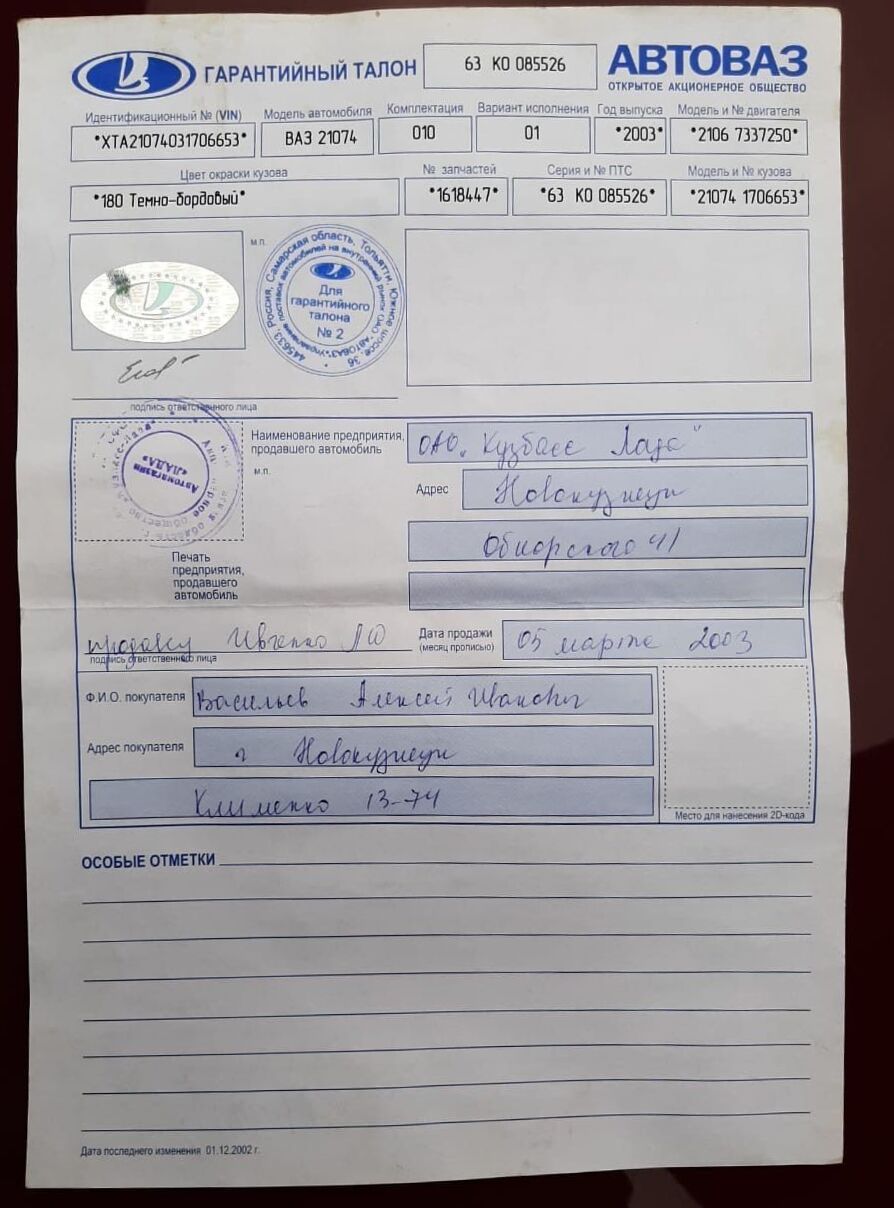 ГАРАНТИЙНЫЙ ТАЛОН
63 КО 085526
АВТОВАЗ
ОТКРЫТОЕ АКЦИОНЕРНОЕ ОБЩЕСТВО
Идентификационный № (VIN) Модель автомобиля Комплектация Вариант исполнения Год выпуска Модель и № двигателя
*XTA21074031706653* ВАЗ 21074 010 01 *2003* *2106 7337250*
Цвет окраски кузова № запчастей Серия и № ПТС Модель и № кузова
*180 Темно-бордовый* *1618447* *63 КО 085526* *21074 1706653*
м.п.
445633, Россия, Самарская область, Тольятти, Южное шоссе, 36
Управление поставок автомобилей на внутренний рынок ОАО "АВТОВАЗ"
Для
гарантийного
талона
№ 2
подпись ответственного лица
Автомагазин
«ЛАДА»
Наименование предприятия, ОАО „Кузбасс Лада"
продавшего автомобиль
м.п.
Адрес Новокузнецк
Обнорского 41
Печать
предприятия,
продавшего
автомобиль
продавец Ивченко
подпись ответственного лица
Дата продажи 05 марта 2003
(месяц прописью)
Ф.И.О. покупателя Васильев Алексей Иванович
Адрес покупателя г Новокузнецк
Клименко 13-74
Место для нанесения 2D-кода
ОСОБЫЕ ОТМЕТКИ
Дата последнего изменения 01.12.2002 г.